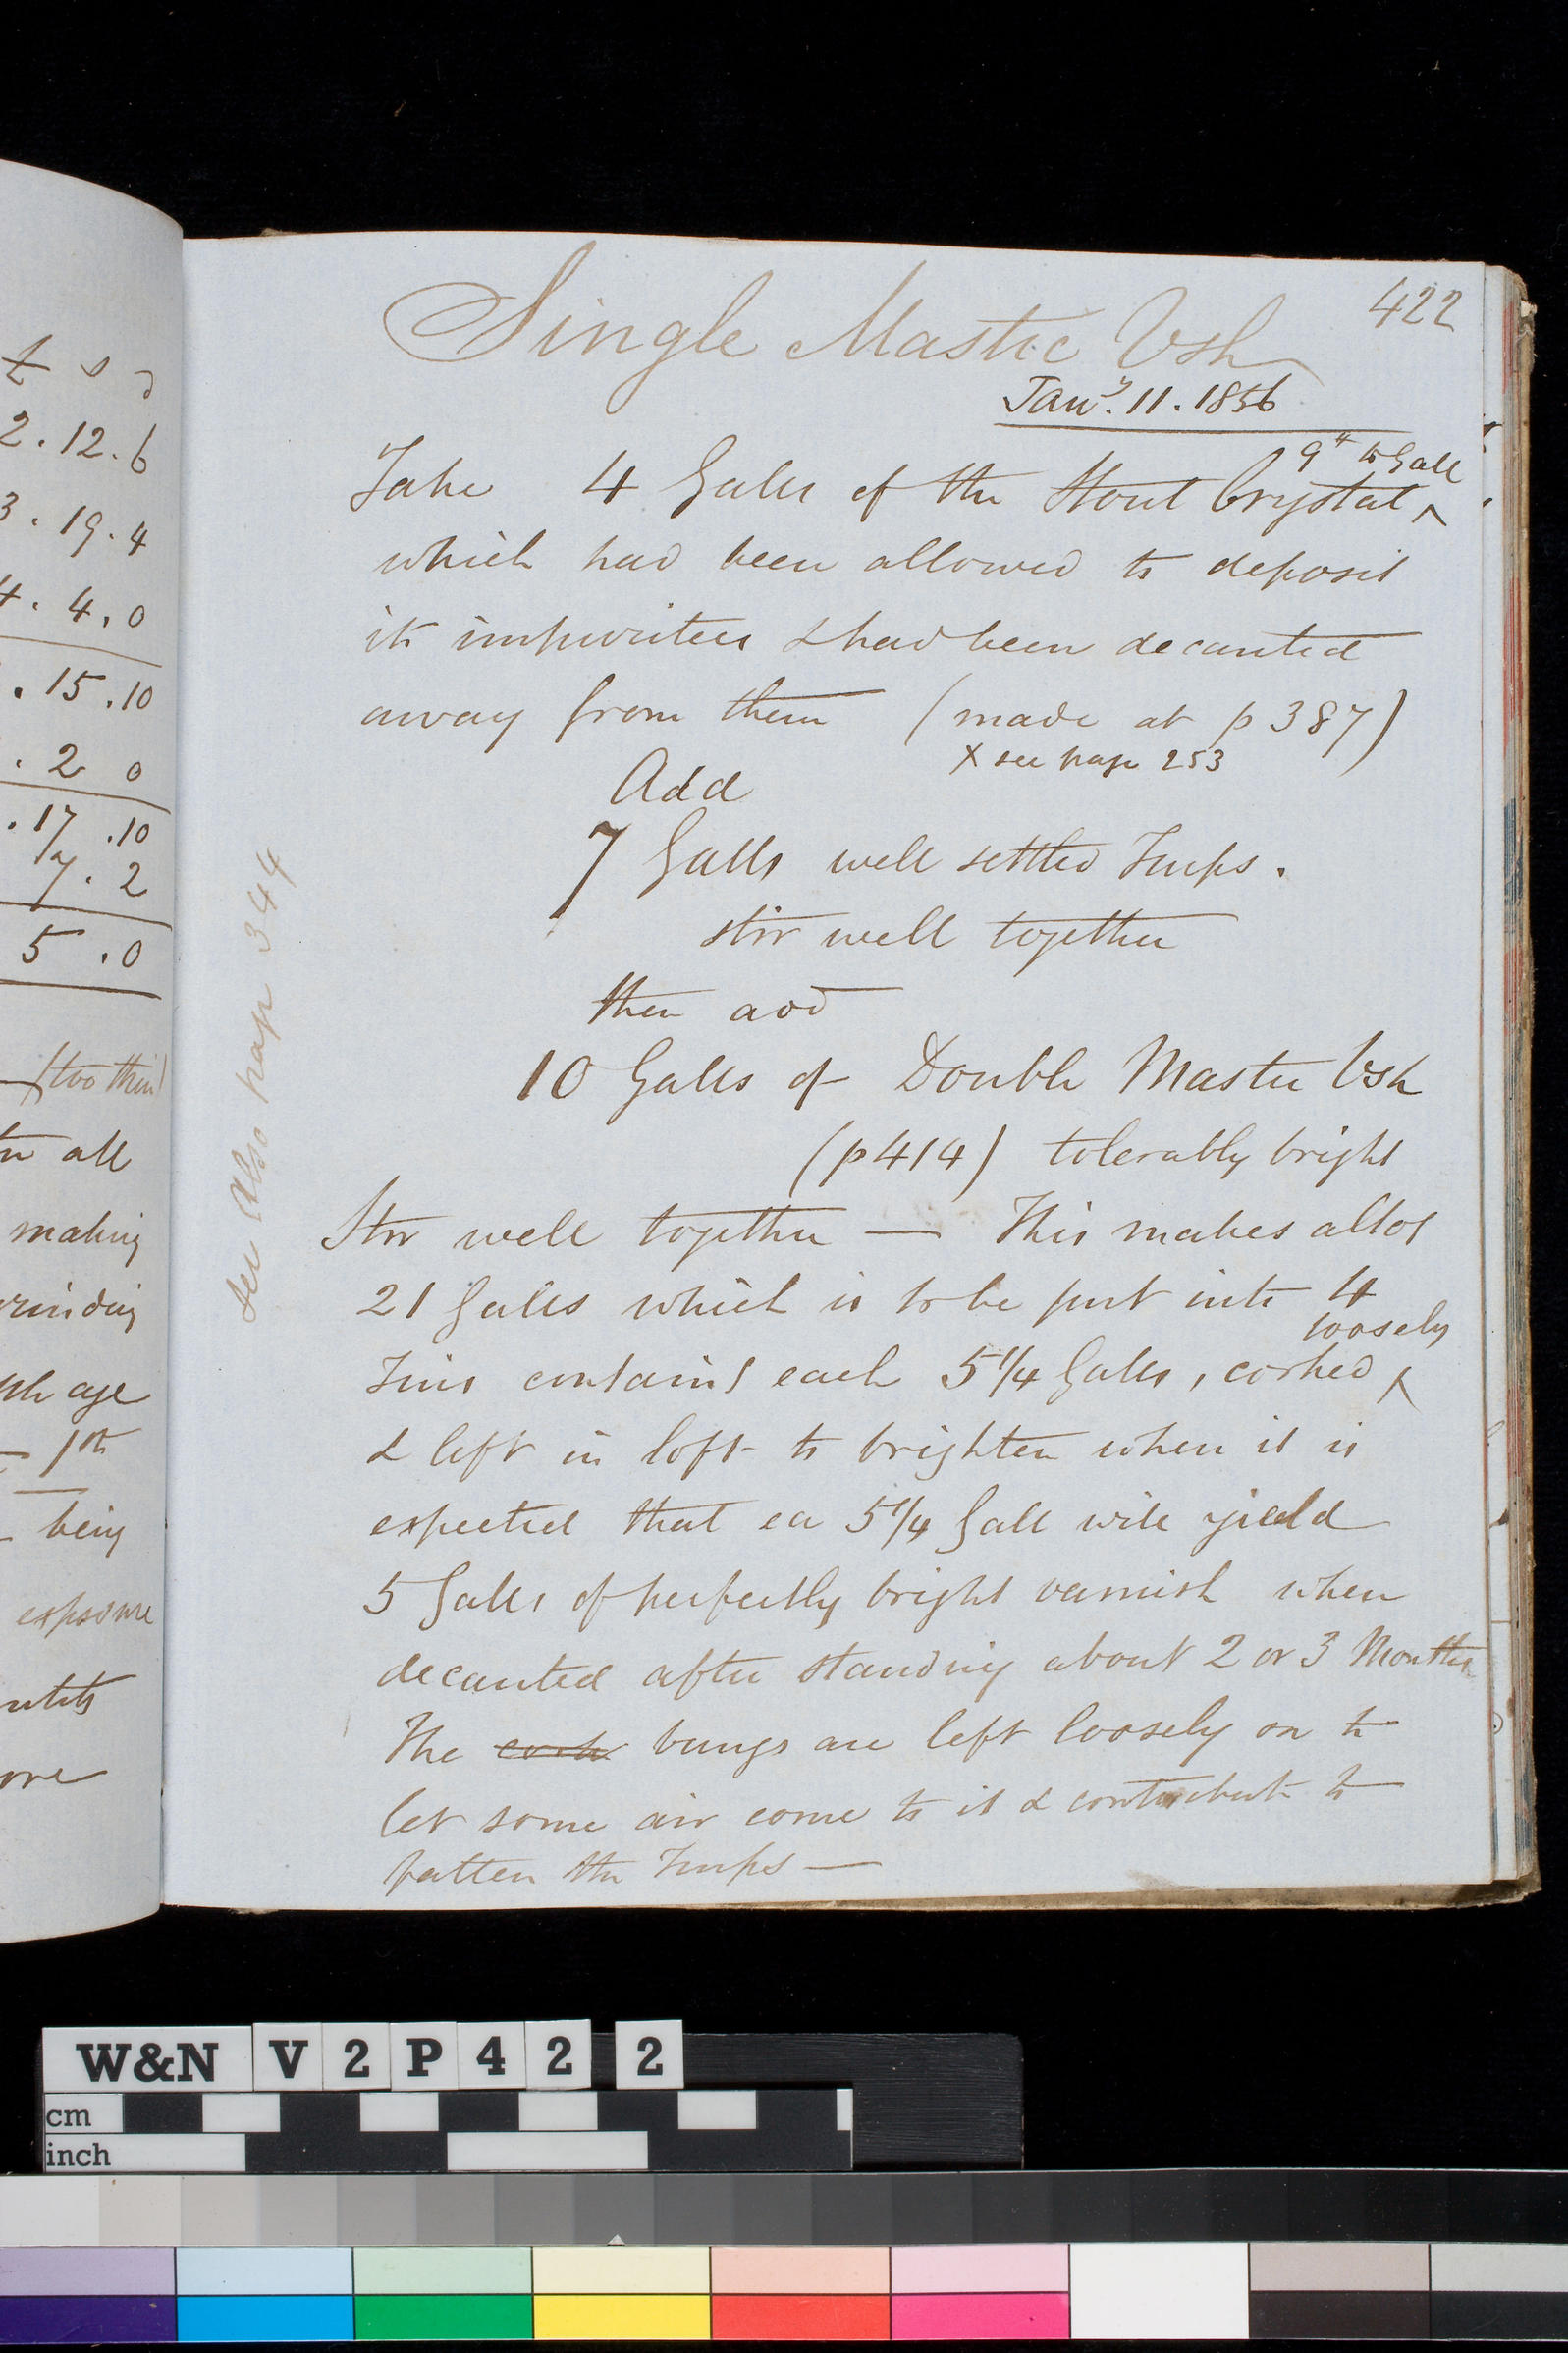 £ s d
2 . 12 . 6
3 . 19 . 4
4 . 4 . 0
. 15 . 10
. 2 0
. 17 . 10
7 . 2
5 . 0
(too thin)
all
making
age
1th
being
exposure
422
Single Mastic Vsh
Jany. 11. 1856
9# to Gall
Take 4 Galls of the Stout Crystal ^
which had been allowed to deposit
its impurities & had been decanted
away from them (made at p 387)
X see page 253
Add
7 Galls well settled Turps.
stir well together
then add
10 Galls of Double Mastic Vsh
(p414) tolerably bright
Stir well together — This makes altog
21 Galls which is to be put into 4
loosely
Tins containg each 5 1/4 Galls, corked ^
& left in loft to brighten when it is
expected that ea 5 1/4 Gall will yield
5 Galls of perfectly bright varnish when
decanted after standing about 2 or 3 Months
The bungs are left loosely on to
let some air come to it & contribute to
fatten the Turps —
see also page 344
W&N V 2 P 4 2 2
cm
inch